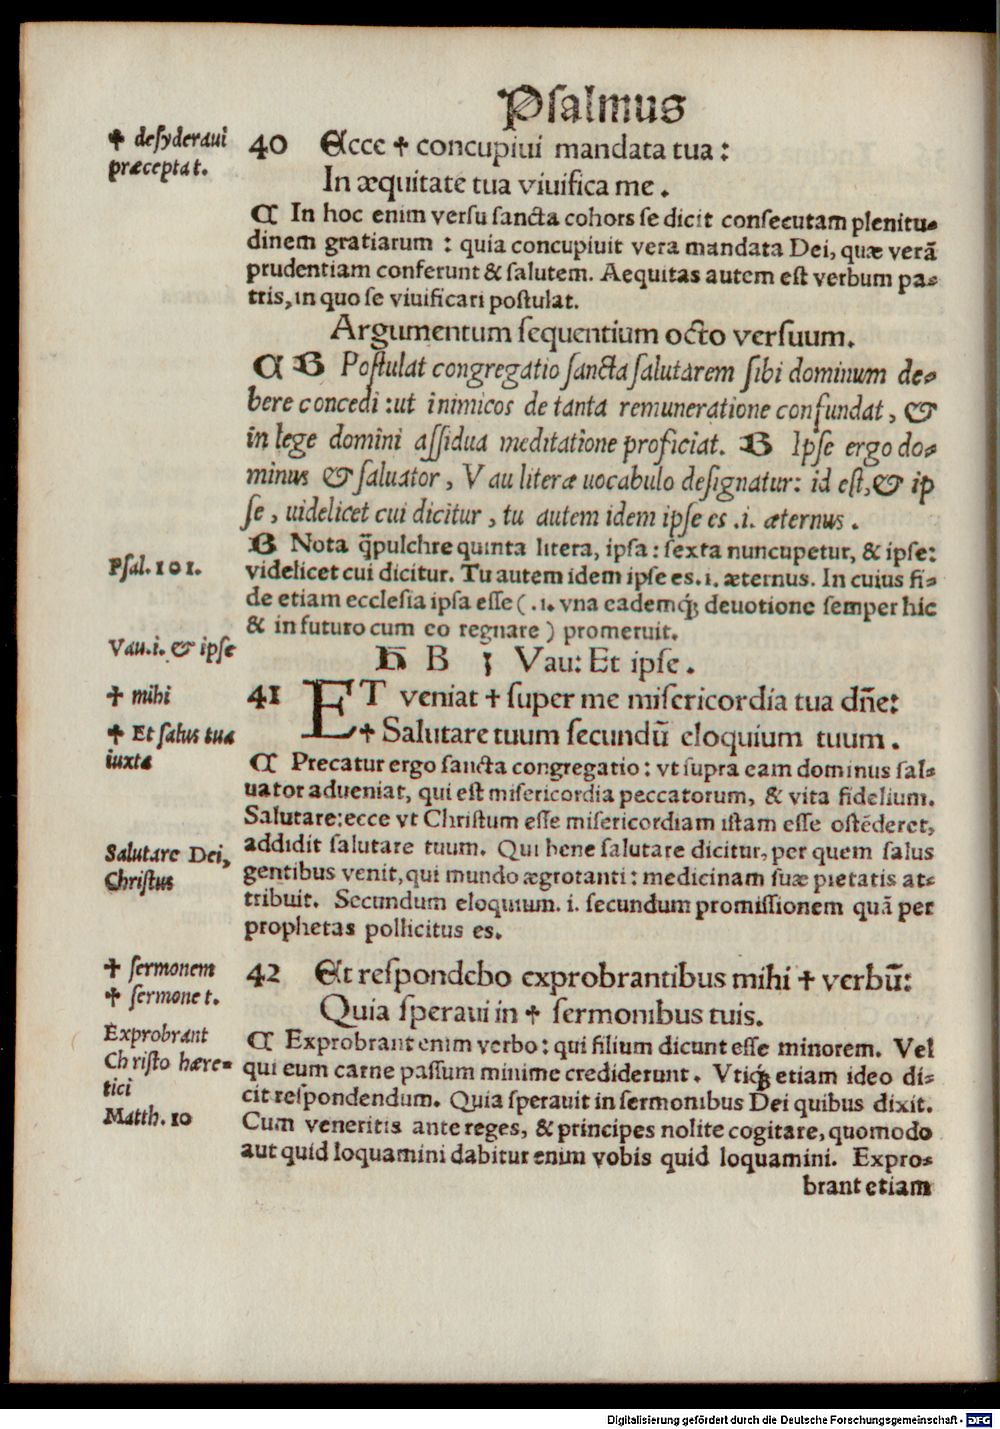 Psalmus
✝ desyderaui
præcepta t.
40 Ecce ✝ concupiui mandata tua:
In æquitate tua viuifica me.
¶ In hoc enim versu sancta cohors se dicit consecutam plenitu-
dinem gratiarum : quia concupiuit vera mandata Dei, quæ verā
prudentiam conferunt & salutem. Aequitas autem est verbum pa-
tris, in quo se viuificari postulat.
Argumentum sequentium octo versuum.
¶ B Postulat congregatio sancta salutarem sibi dominum de-
bere concedi : ut inimicos de tanta remuneratione confundat, &
in lege domini assidua meditatione proficiat. B Ipse ergo do-
minus & saluator, Vau literæ uocabulo designatur: id est, & ip
se, uidelicet cui dicitur, tu autem idem ipse es .i. æternus.
B Nota q̄pulchre quinta litera, ipsa: sexta nuncupetur, & ipse:
Psal. 101.
videlicet cui dicitur. Tu autem idem ipse es. i. æternus. In cuius fi-
de etiam ecclesia ipsa esse ( .i. vna eademq; deuotione semper hic
& in futuro cum eo regnare ) promeruit.
Vau. i. & ipse
B Vau: Et ipse.
✝ mihi
41 ET veniat ✝ super me misericordia tua dn̄e:
✝ Et salus tua
iuxta
✝ Salutare tuum secundū eloquium tuum.
¶ Precatur ergo sancta congregatio: vt supra eam dominus sal-
uator adueniat, qui est misericordia peccatorum, & vita fidelium.
Salutare: ecce vt Christum esse misericordiam istam esse ostēderet,
Salutare Dei,
Christus
addidit salutare tuum. Qui bene salutare dicitur, per quem salus
gentibus venit, qui mundo ægrotanti: medicinam suæ pietatis at-
tribuit. Secundum eloquium. i. secundum promissionem quā per
prophetas pollicitus es.
✝ sermonem
✝ sermone t.
42 Et respondebo exprobrantibus mihi ✝ verbū:
Quia speraui in ✝ sermonibus tuis.
Exprobrant
Christo hære-
tici
Matth. 10
¶ Exprobrant enim verbo: qui filium dicunt esse minorem. Vel
qui eum carne passum minime crediderunt. Vtiq; etiam ideo di-
cit respondendum. Quia sperauit in sermonibus Dei quibus dixit.
Cum veneritis ante reges, & principes nolite cogitare, quomodo
aut quid loquamini dabitur enim vobis quid loquamini. Expro-
brant etiam
Digitalisierung gefördert durch die Deutsche Forschungsgemeinschaft - DFG